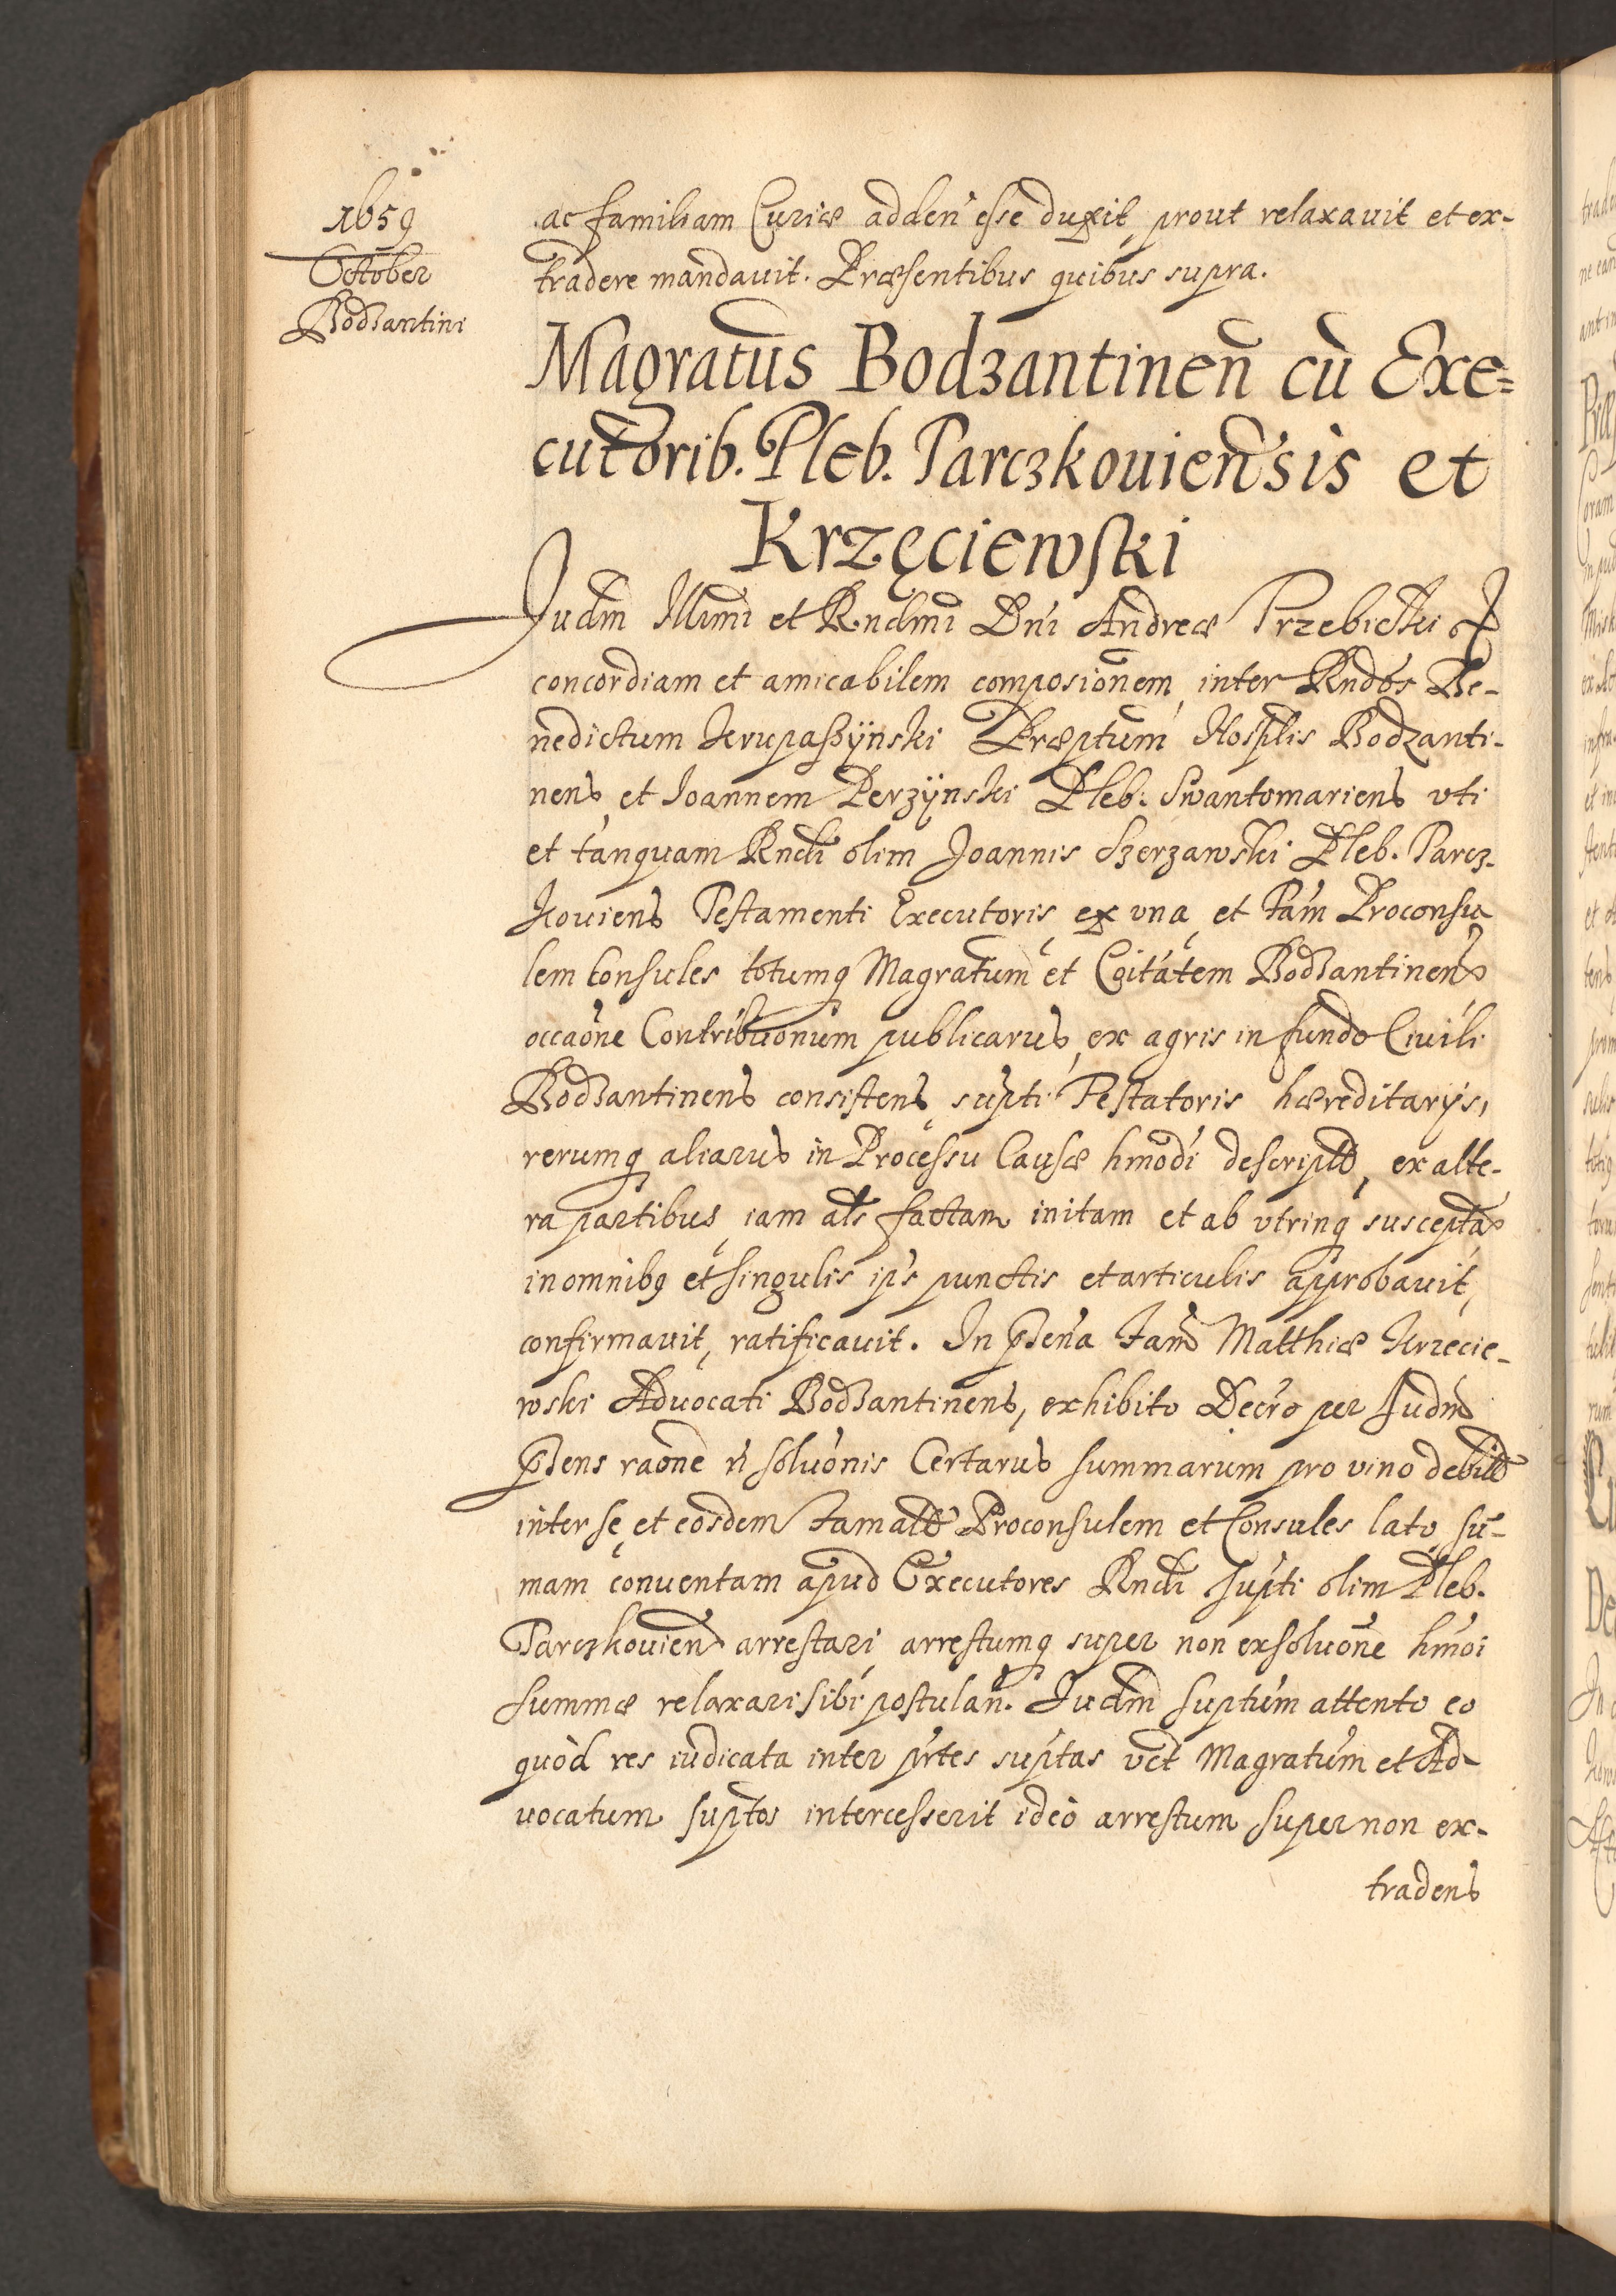 1659
October
Bodzantini
ac familiam Curiæ adden esse duxit, prout relaxavit et ex-
tradere mandavit. Præsentibus quibus supra.
Magratus Bodzantinen cu Exe=
cutorib. Pleb. Parczkouiensis et
Krzęciewski
Judm Illmi et Rndmi Dni Andreæ Trzebicki
concordiam et amicabilem composionem, inter Rndos Be-
nedictum Krupaszÿnski Præptum Hosplis Bodzanti-
nens, et Joannem Perzÿnski Pleb: Swantomariens vti
et tanquam Rndi olim Joannis Szerzawski Pleb. Parcz-
kouiens Testamenti Executoris, ex vna, et Fam Proconsu
lem Consules totumq Magratum et Coitatem Bodzantinens
occaone Contribuonum publicarus, ex agris in fundo Ciuili
Bodzantinens consistens, supti Testatoris hæreditarijs,
rerumq aliarus in Processu Causæ hmodi descript, ex alte-
ra partibus, iam als factam initam et ab vtrinq suscepta
in omnibq et singulis ips punctis et articulis approbauit,
confirmauit, ratificauit. In psena Fam Matthiæ Krzecie-
wski Aduocati Bodzantinens, exhibito Decro per Judm
psens raone n soluonis Certarus summarum pro vino debit
inter se, et eosdem Famat Proconsulem et Consules lato, su-
mam conuentam apud Executores Rndi supti olim Pleb.
Parczkouien arrestari, arrestumq super non exsoluone hmoi
summæ relaxari sibi postulan. Judm suptum attento eo
quòd res iudicata inter prtes suptas vct Magratum et Ad-
uocatum suptos intercesserit ideò arrestum super non ex-
tradens